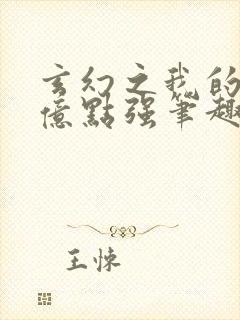 玄幻之我的
億點强筆趣
王悚